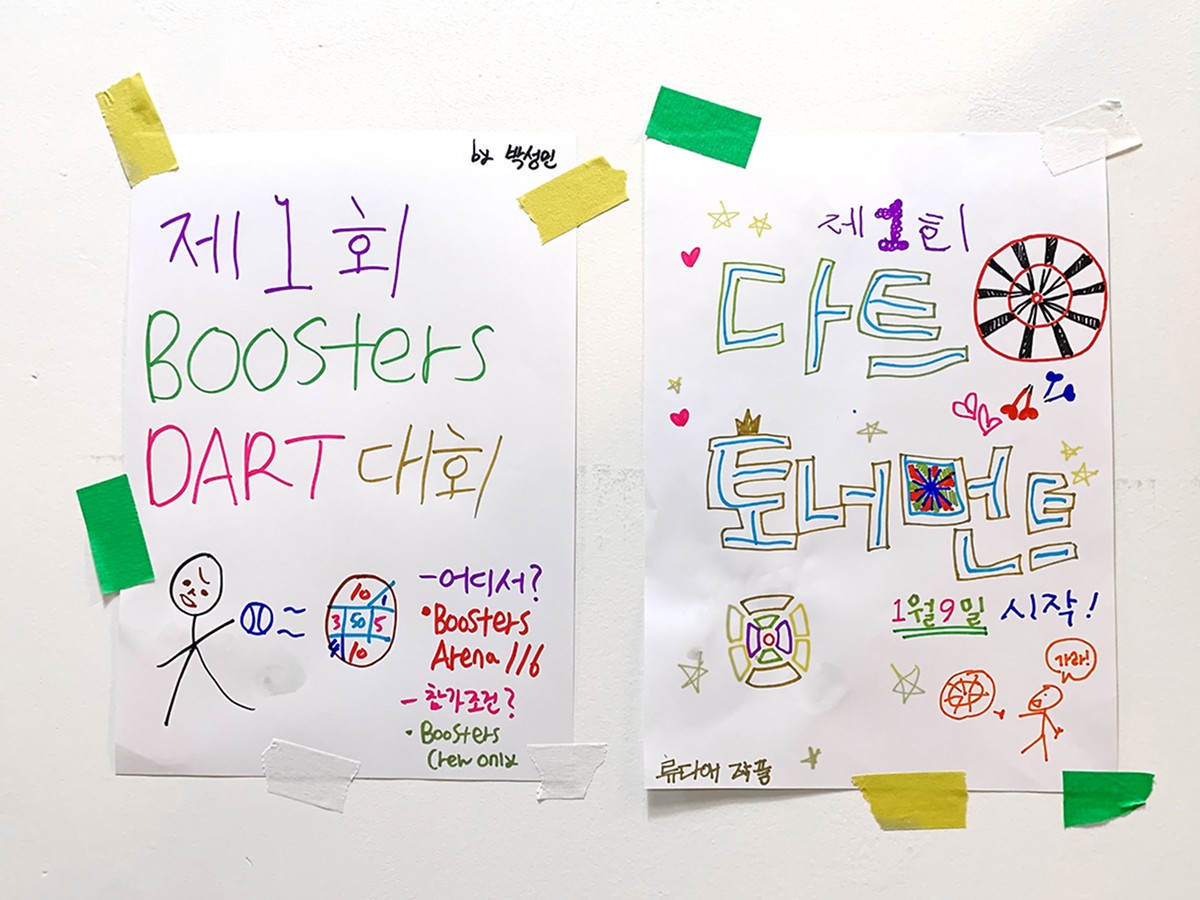 by 박성민
제1회
BOOSters
DART 대회
10 1
3 50 5
4 10
-어디서?
• Boosters
Arena 116
- 참가조건?
• Boosters
Crew only
제1회
다트
토너먼트
1월9일 시작!
가라!
류다애 작품